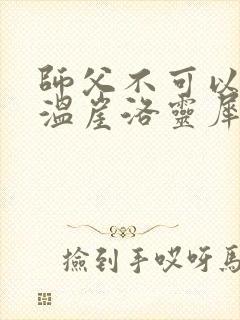 師父不可以
溫崖洛靈犀
撿到手哎呀馬